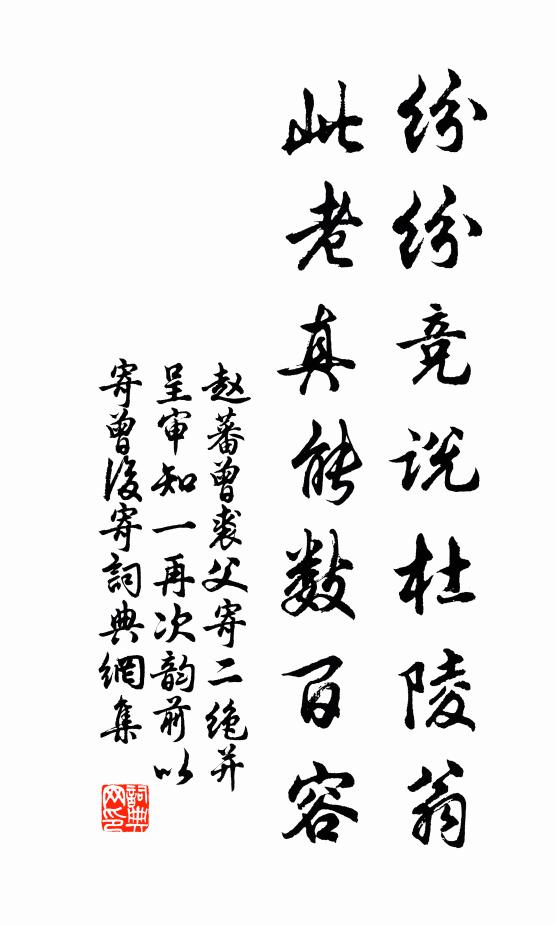 纷纷竞说杜陵翁
此老真能数百容
赵蕃曾裘父寄二绝并
呈审知一再次韵前以
寄曾后寄詞典網集
詞典网印